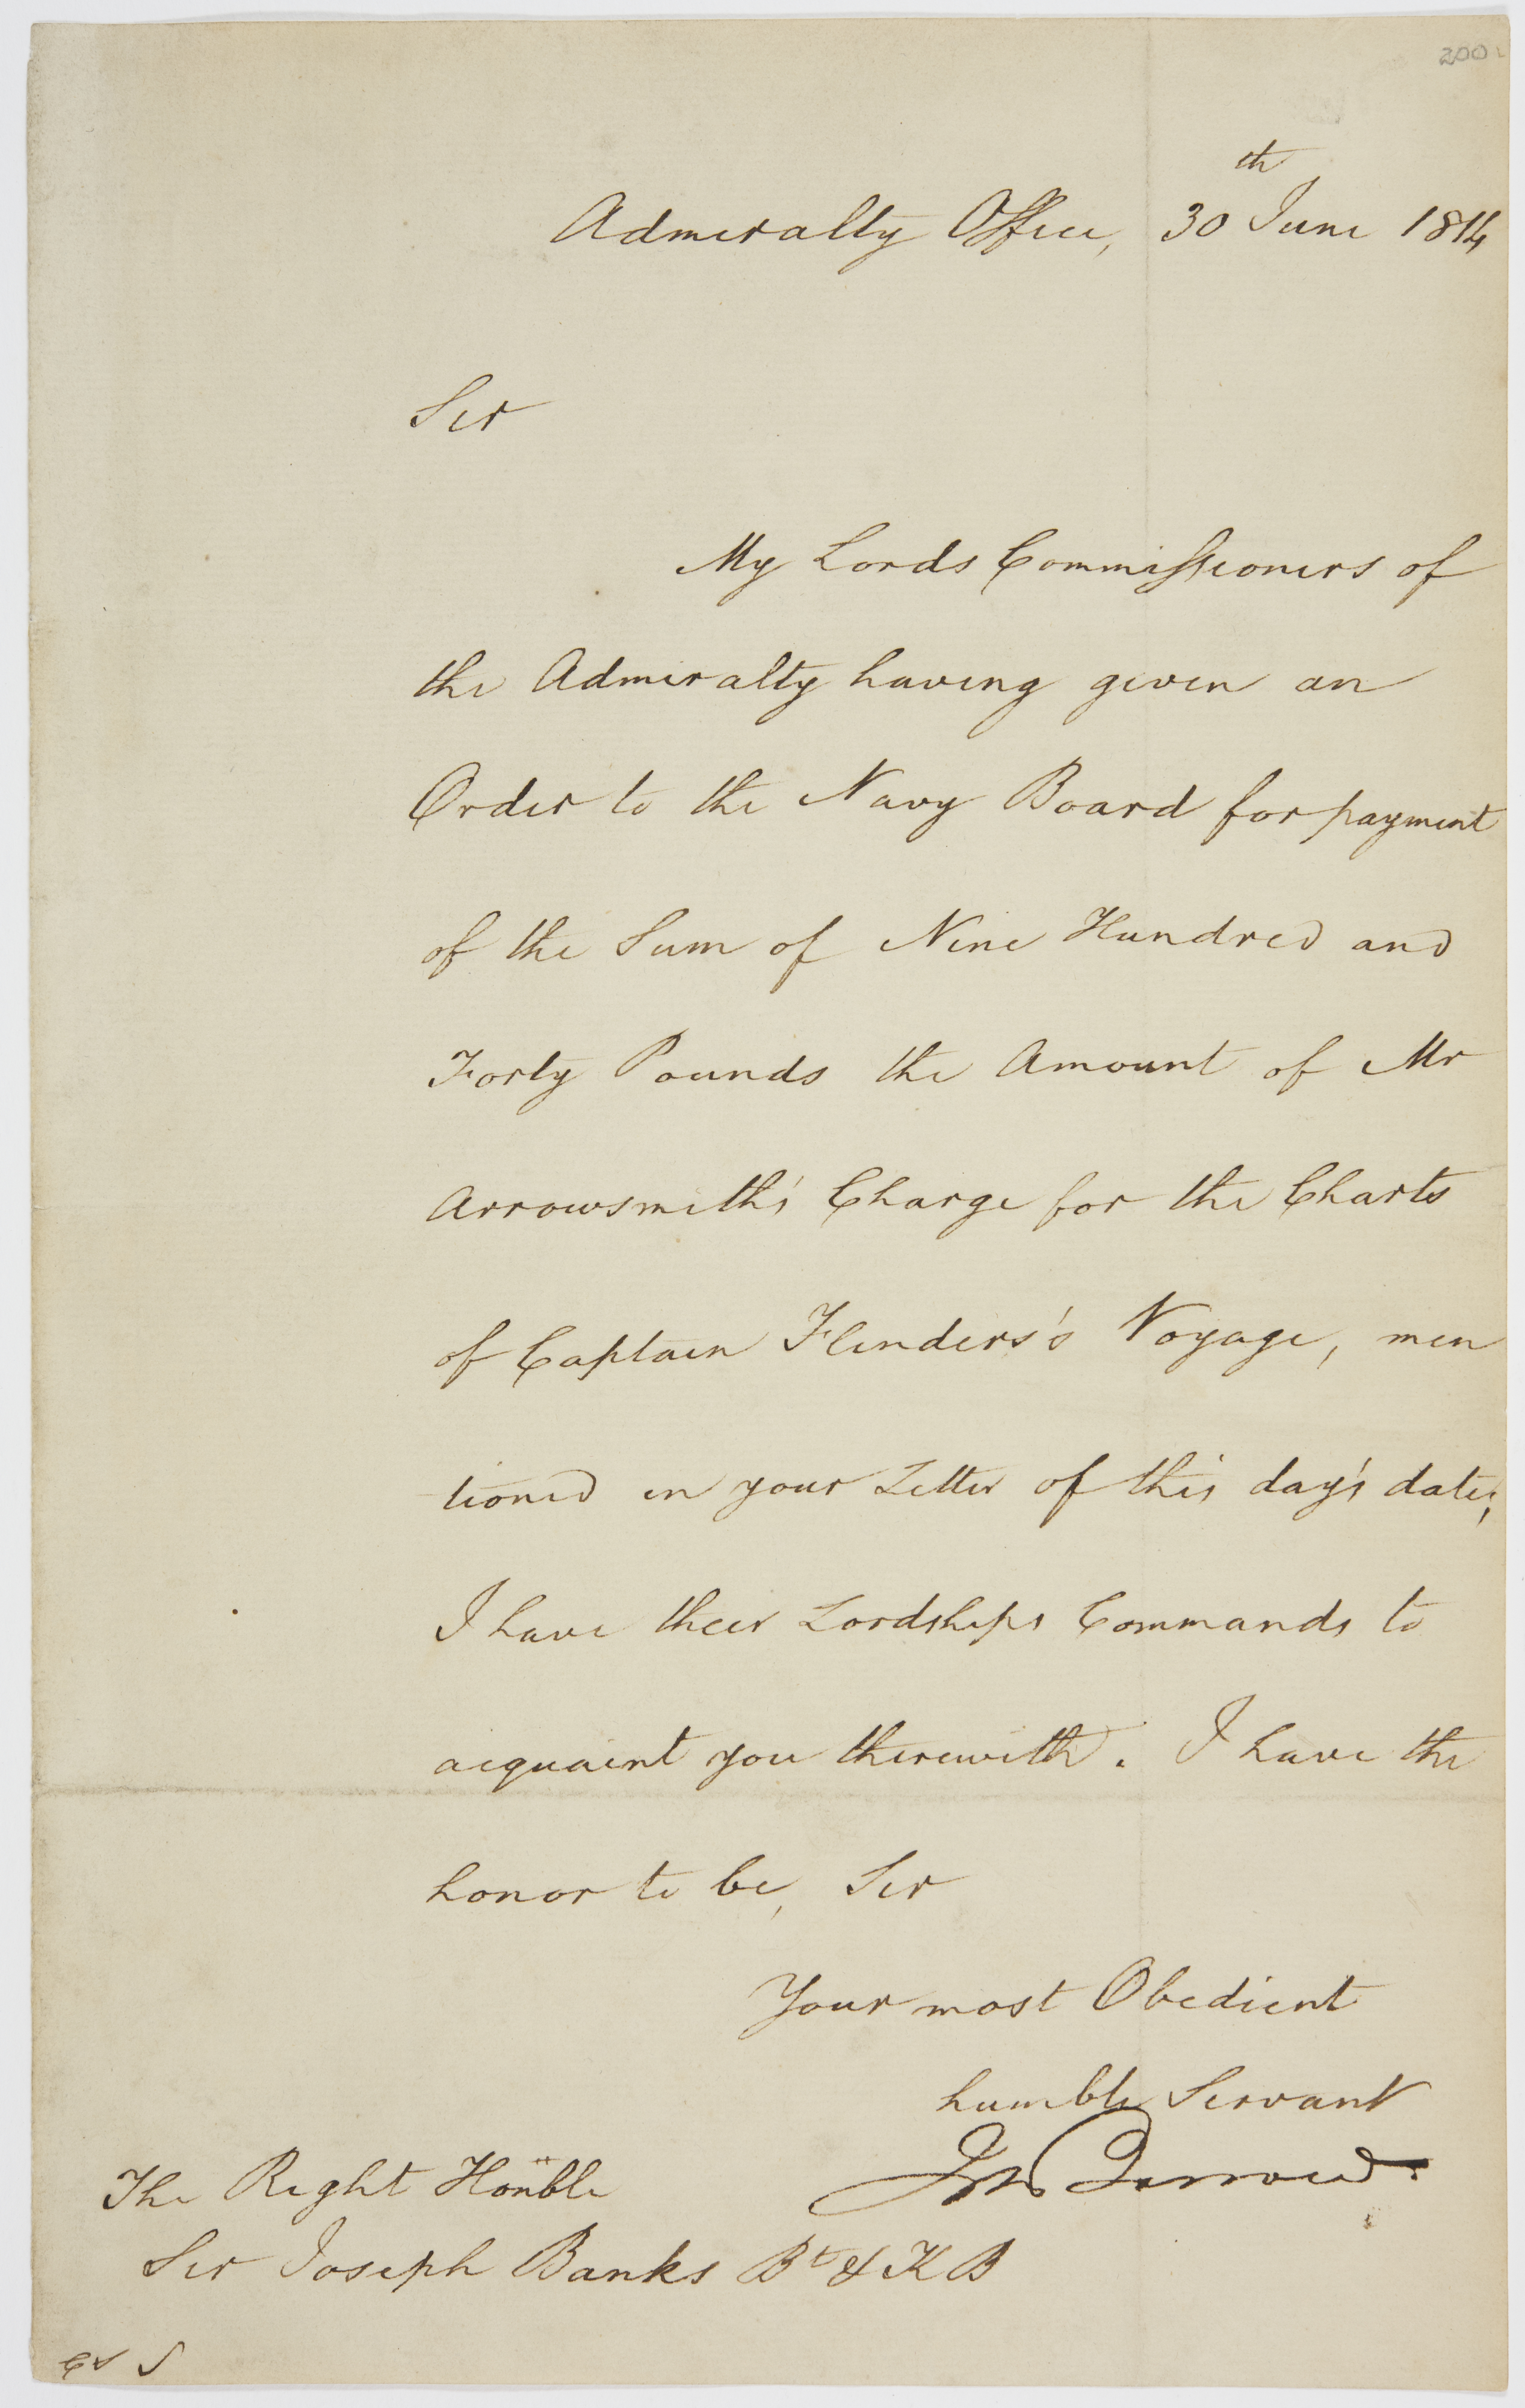 200
Admiralty Office, 30th June 1814
Sir
My Lords Commissioners of
the Admiralty having given an
Order to the Navy Board for payment
of the Sum of Nine Hundred and
Forty Pounds the Amount of Mr
Arrowsmith's Charge for the Charts
of Captain Flinders's Voyage, men
tioned in your Letter of this day's date,
I have their Lordships Commands to
acquaint you therewith. I have the
honor to be, Sir
Your most Obedient
humble Servant
Jn Barrow.
The Right Honble
Sir Joseph Banks Bt & K B